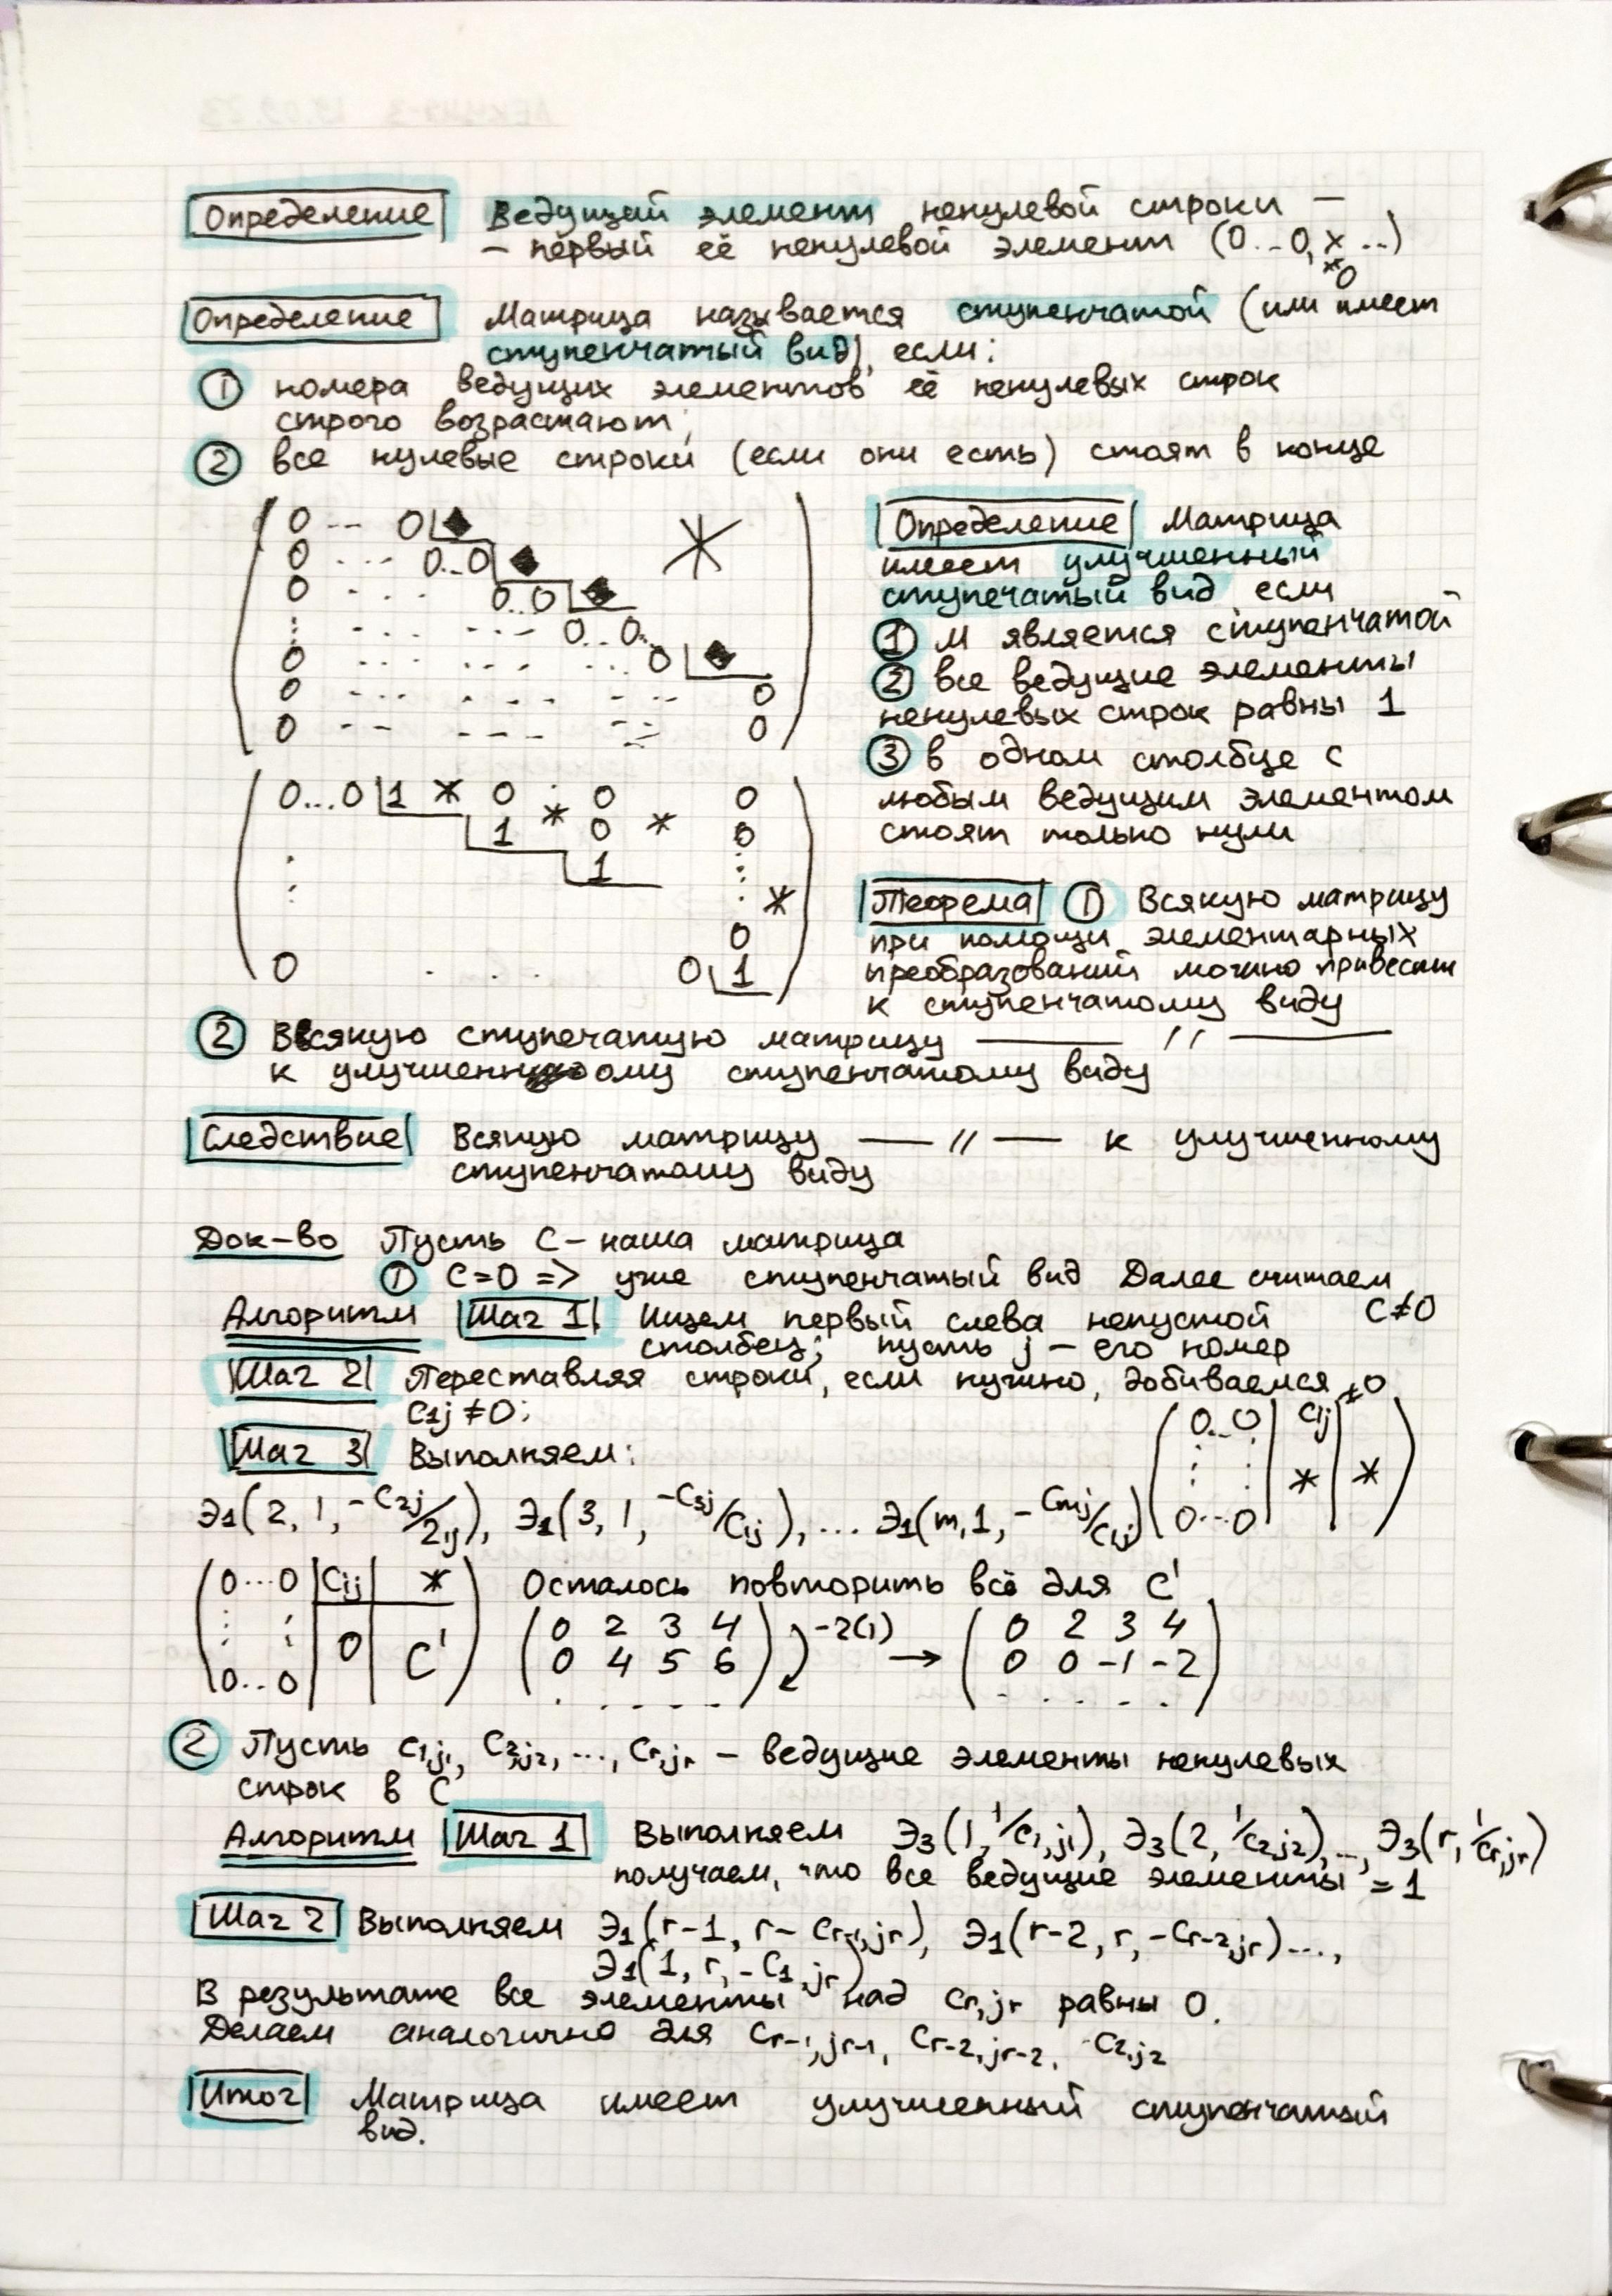 Определение Ведущий элемент ненулевой строки —
— первый её ненулевой элемент (0...0, x ...)
≠0
Определение Матрица называется ступенчатой (или имеет
ступенчатый вид), если:
① номера ведущих элементов её ненулевых строк
строго возрастают;
② все нулевые строки (если они есть) стоят в конце
0 ... 0 ◆
0 ... 0..0 ◆ *
0 ... 0..0 ◆
⋮ ... ... 0..0..
0 ... ... ... 0 ◆
0 ... ... ... 0
0 ... ... ... 0
Определение Матрица
имеет улучшенный
ступечатый вид если
① М является ступенчатой
② все ведущие элементы
ненулевых строк равны 1
③ в одном столбце с
любым ведущим элементом
стоят только нули
0...0 1 * 0 . 0 0
1 * 0 * 0
⋮ 1 ⋮
*
0
0 . . . 0 1
Теорема ① Всякую матрицу
при помощи элементарных
преобразований можно привести
к ступенчатому виду
② Всякую ступечатую матрицу —— // ——
к улучшенному ступенчатому виду
Следствие Всякую матрицу — // — к улучшенному
ступенчатому виду
Док-во Пусть C - наша матрица
① C=0 => уже ступенчатый вид Далее считаем
C≠0
Алгоритм Шаг 1 Ищем первый слева непустой
столбец; пусть j — его номер
Шаг 2 Переставляя строки, если нужно, добиваемся
c1j ≠ 0;
Шаг 3 Выполняем:
0...0 | c1j ≠0 |
⋮ ⋮ | * | *
0...0
Э1(2, 1, -c2j/2ij), Э1(3, 1, -c3j/cij), ... Э1(m, 1, -cmj/c1j)
0...0 | cij | *
⋮ ⋮ | 0 | C'
0...0
Осталось повторить всё для C'
0 2 3 4
0 4 5 6
. . . . .
-2(1) →
0 2 3 4
0 0 -1 -2
. . . . .
② Пусть c1,j1, c2,j2, ..., cr,jr - ведущие элементы ненулевых
строк в C
Алгоритм Шаг 1 Выполняем Э3(1, 1/c1,j1), Э3(2, 1/c2,j2), ..., Э3(r, 1/cr,jr)
получаем, что все ведущие элементы = 1
Шаг 2 Выполняем Э1(r-1, r - cr-1,jr), Э1(r-2, r, -cr-2,jr)...,
Э1(1, r, -c1,jr)
В результате все элементы над cr,jr равны 0.
Делаем аналогично для cr-1,jr-1, cr-2,jr-2, c2,j2
Итог Матрица имеет улучшенный ступенчатый
вид.